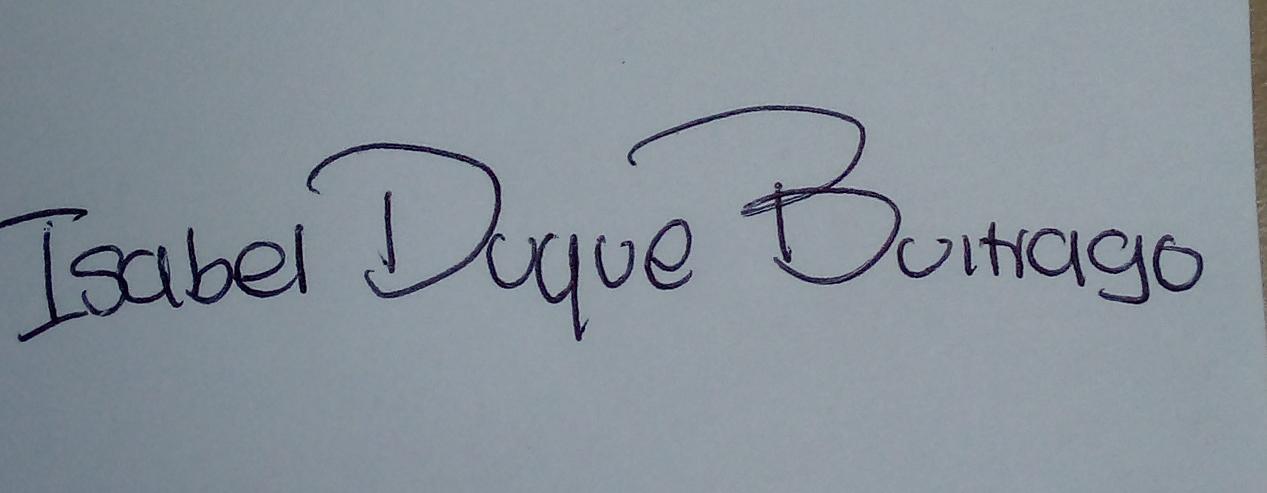 Isabel Duque Buitrago